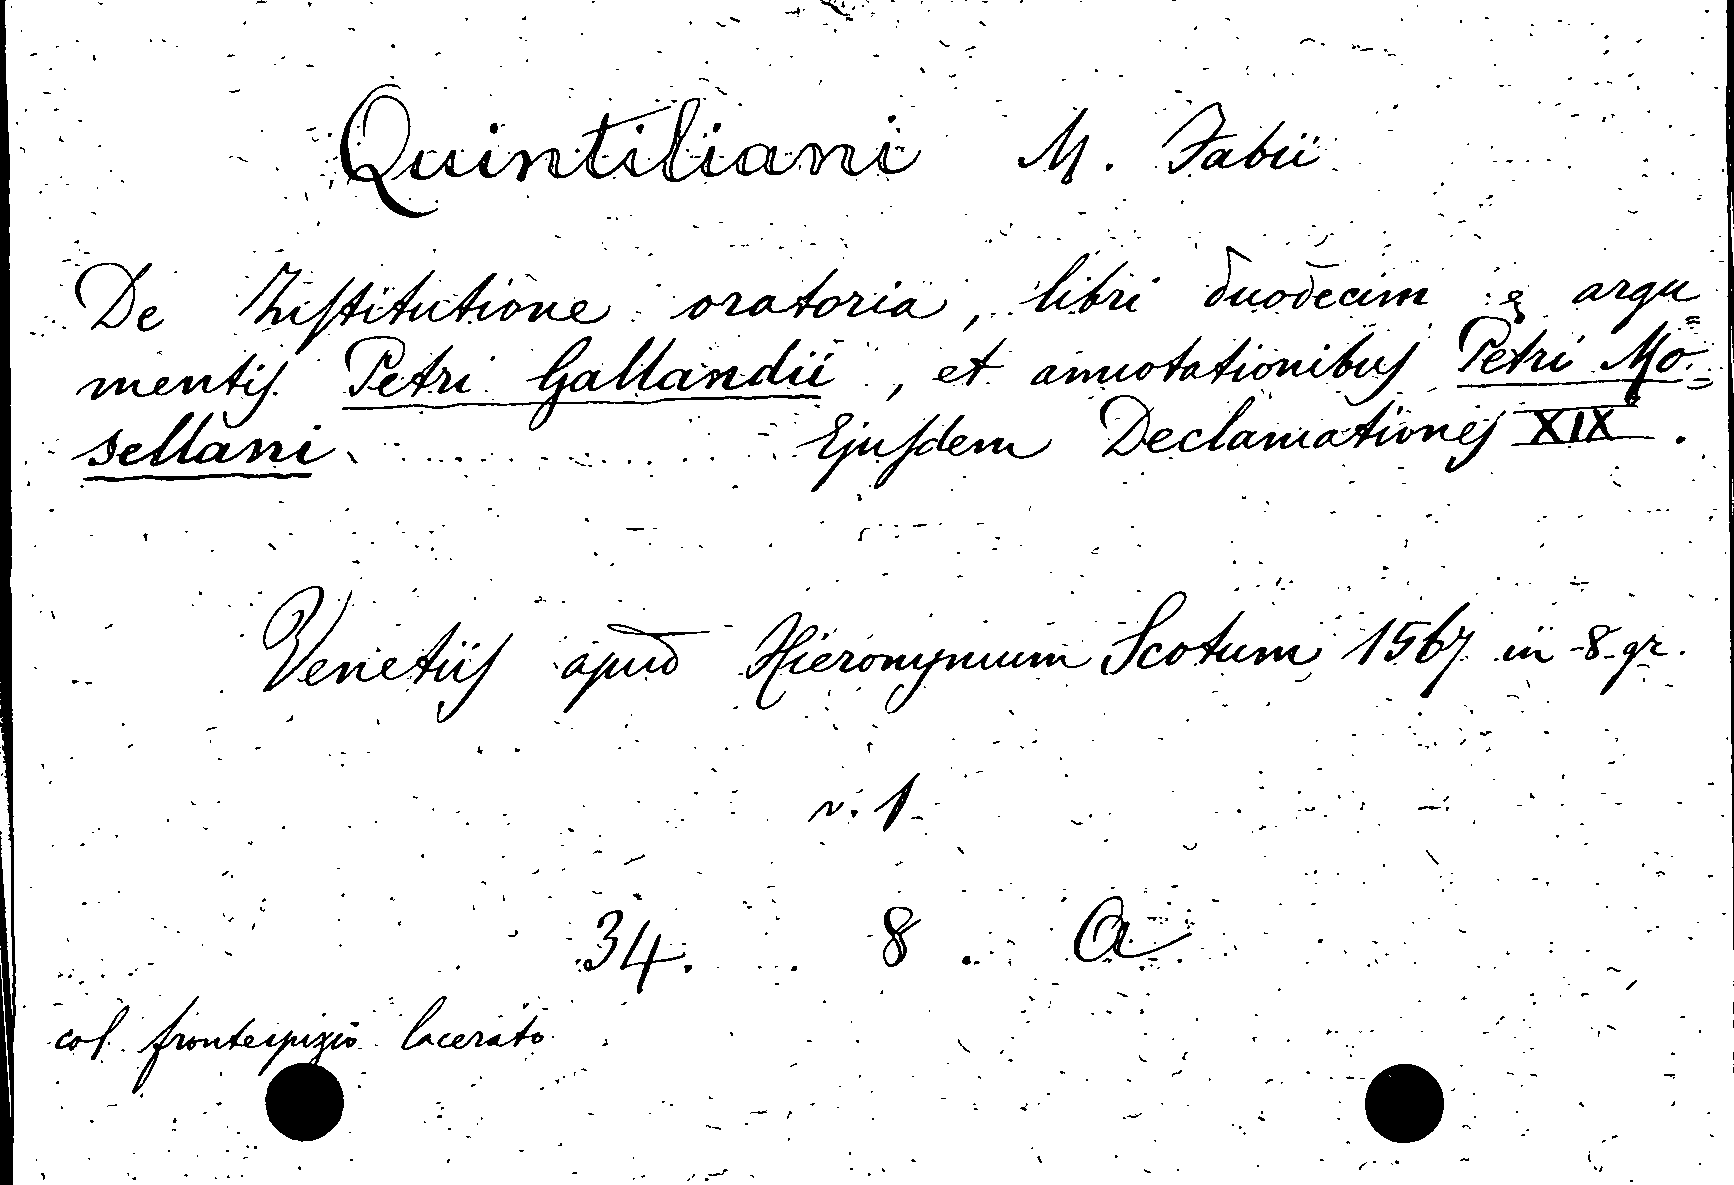 Quintiliani M. Fabii
De Institutione oratoria, libri duodecim & argu=
mentis Petri Gallandii, et annotationibus Petri Mo=
sellani Ejusdem Declamationes XIX.
Venetiis apud Hieronymum Scotum 1567 in 8 gr.
v. 1
34. 8. A
col frontespizio lacerato